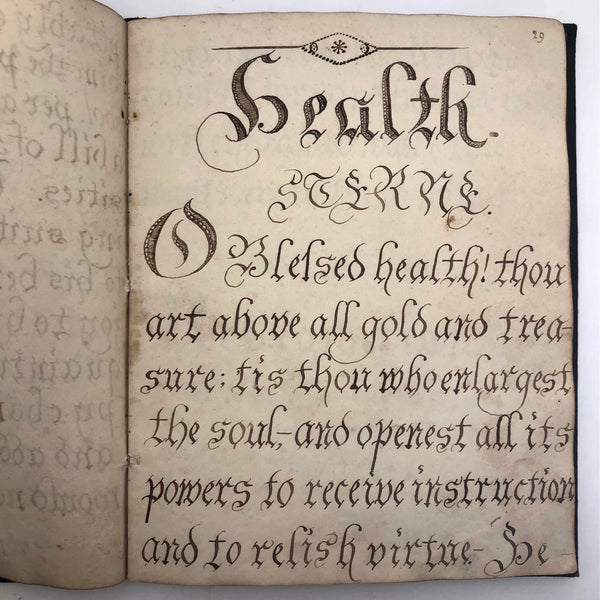 29
Health.
STERNE.
O Blessed health! thou
art above all gold and trea-
sure; tis thou who enlargest
the soul,- and openest all its
powers to receive instruction
and to relish virtue- He -